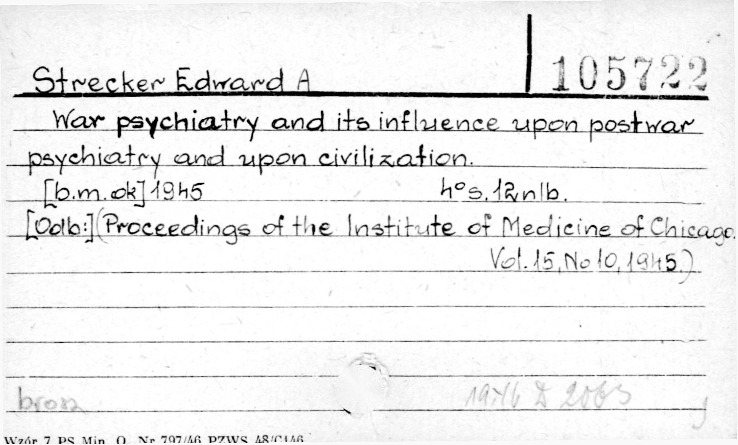 Strecker Edward A
105722
War psychiatry and its influence upon postwar
psychiatry and upon civilization.
[b.m.ok] 1945 4° s. 12 nlb.
[Odb:] (Proceedings of the Institute of Medicine of Chicago.
Vol. 15, No 10, 1945.)
brosz
1946 D 2063
Wzór 7 PS Min. O. Nr 797/46 PZWS 48/C146